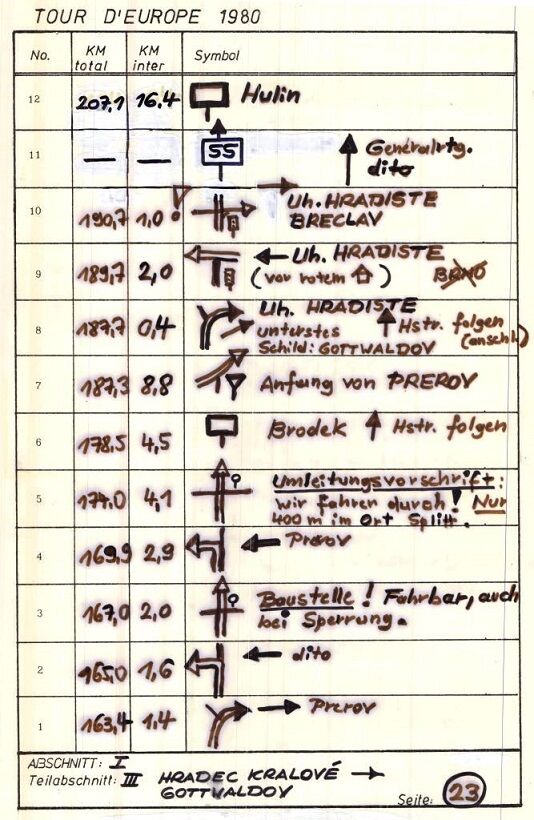 TOUR D'EUROPE 1980
No. KM total KM inter Symbol
12 207,1 16,4 Hulin
11 — — 55 Generalrtg. dito
10 190,7 1,0 ! Uh. HRADISTE
BRECLAV
9 189,7 2,0 Uh. HRADISTE
(vor rotem ) BRNO
8 187,7 0,4 Uh. HRADISTE
unterstes Hstr. folgen
Schild: GOTTWALDOV (anschl.)
7 187,3 8,8 Anfang von PREROV
6 178,5 4,5 Brodek Hstr. folgen
5 174,0 4,1 Umleitungsvorschrift:
wir fahren durch! Nur
400 m im Ort Splitt.
4 169,9 2,9 Prerov
3 167,0 2,0 Baustelle! Fahrbar, auch
bei Sperrung.
2 165,0 1,6 dito
1 163,4 1,4 Prerov
ABSCHNITT: I
Teilabschnitt: III HRADEC KRALOVÉ →
GOTTWALDOV
Seite: 23